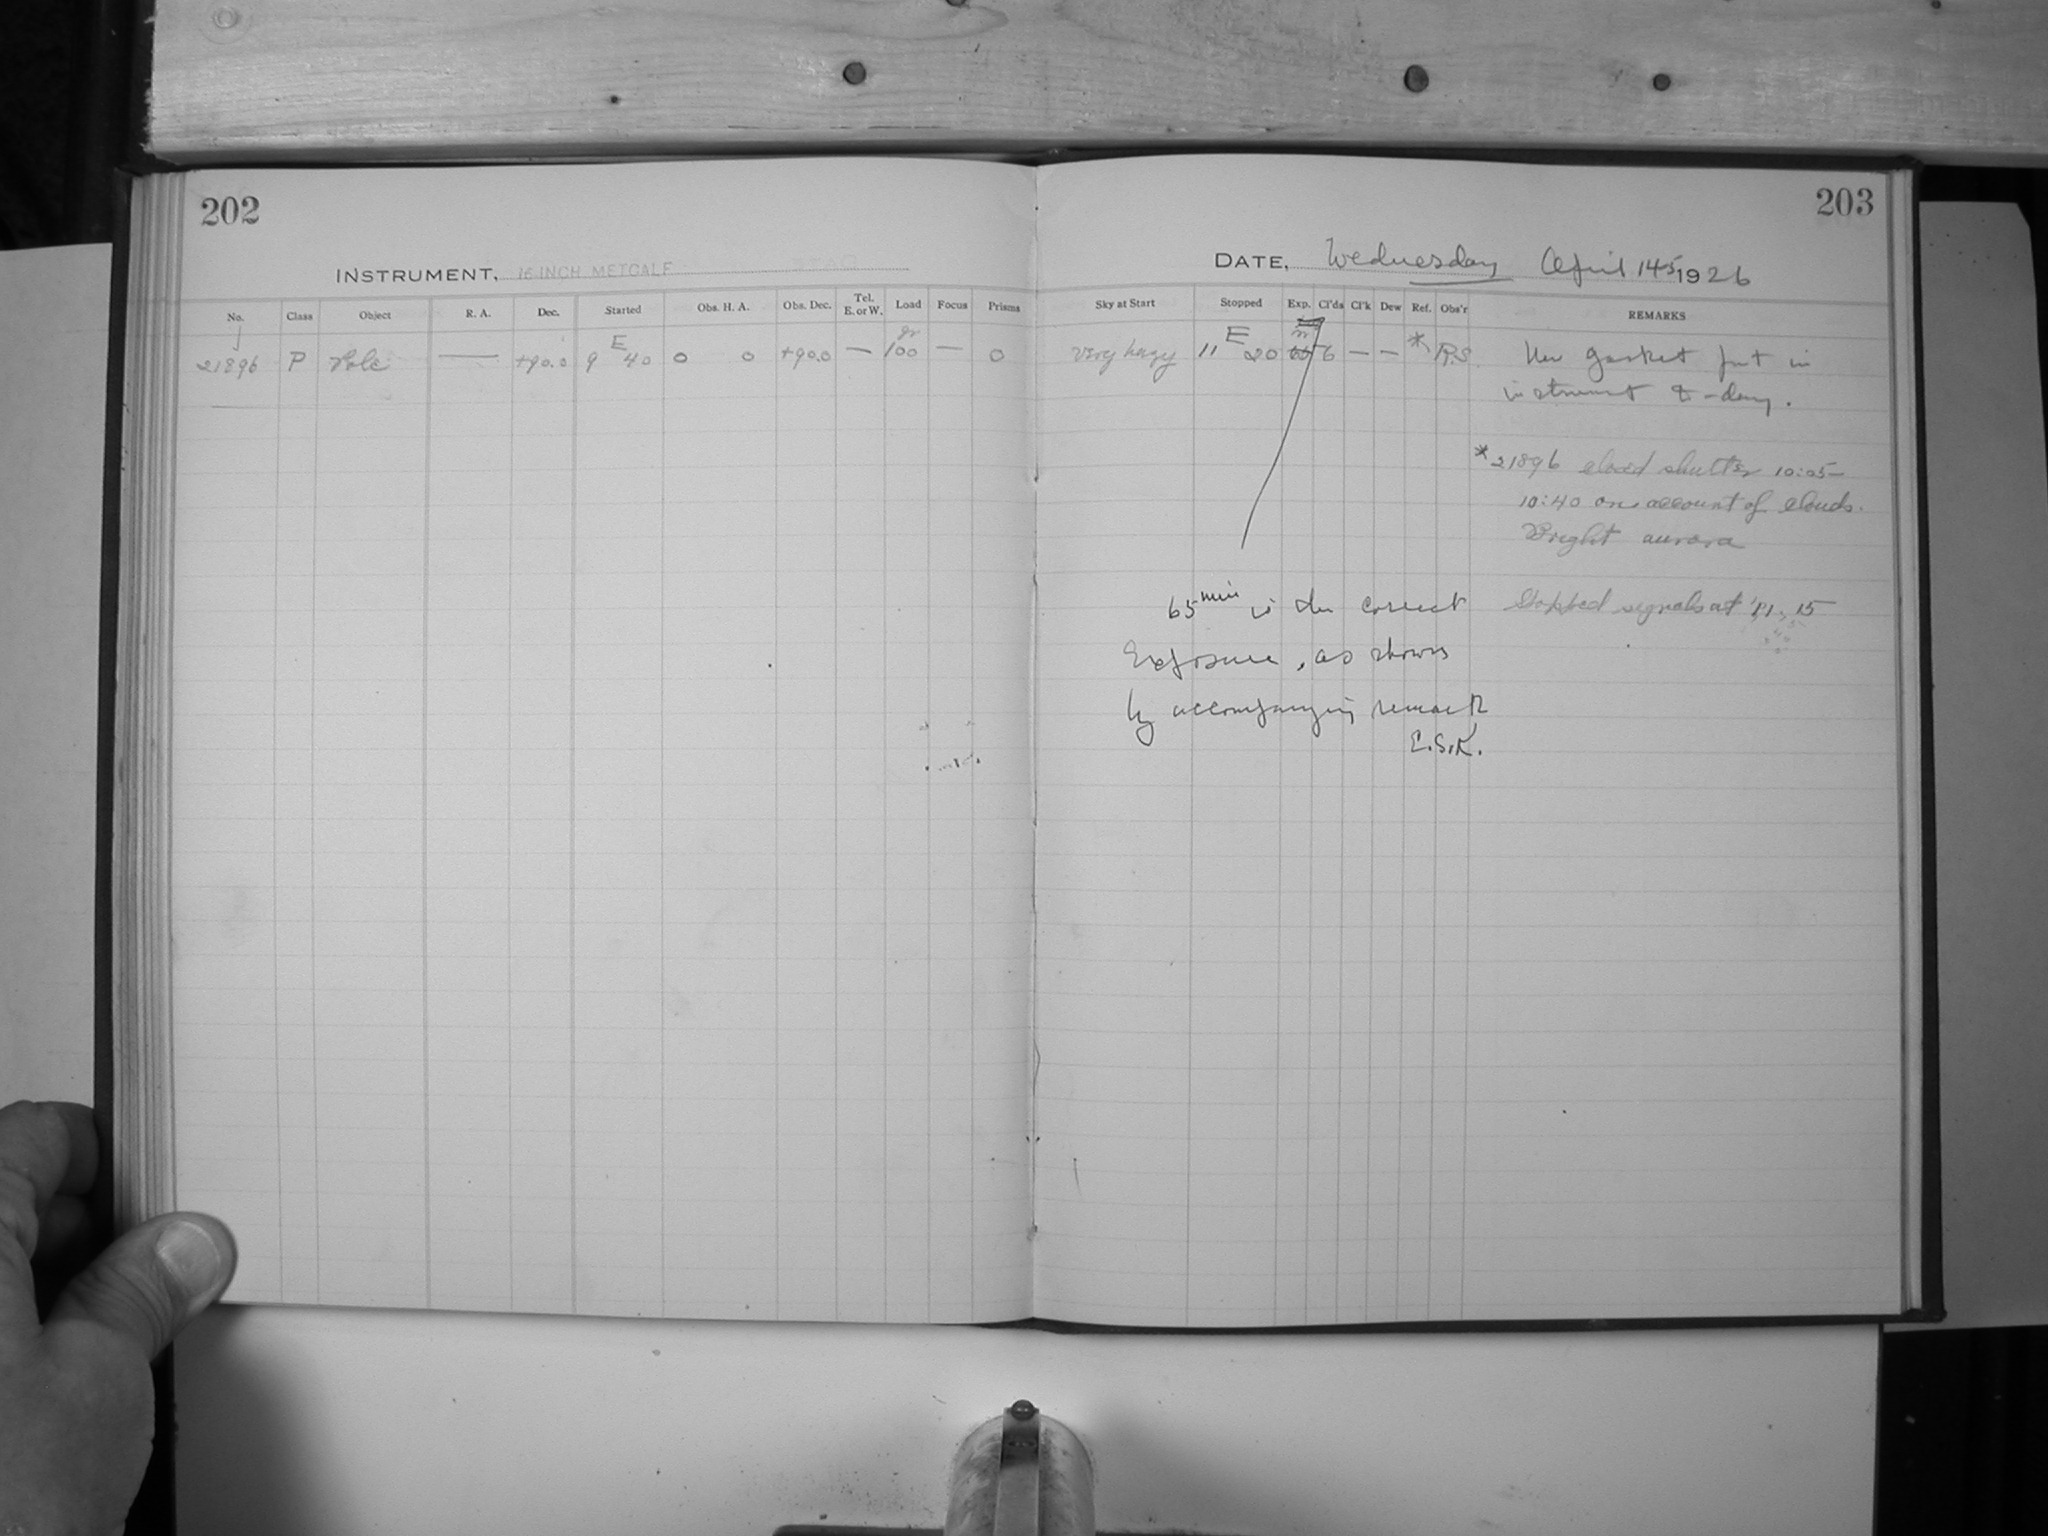 202
203
INSTRUMENT, 16 INCH METCALF
DATE, Wednesday April 14, 1926
No. Class Object R. A. Dec. Started Obs. H. A. Obs. Dec. Tel. E. or W. Load Focus Prisms
Sky at Start Stopped Exp. Cl'ds Cl'k Dew Ref. Obs'r REMARKS
J E gr
E m
21896 P Pole — +90.0 9 40 0 0 +90.0 — 100 — 0
Very hazy 11 20 6 — — * R.S. New gasket put in
instrument to-day.
*21896 closed shutter 10:05–
10:40 on account of clouds.
Bright aurora
65 min is the correct
Stopped signals at 11.15
Exposure, as shown
by accompanying remark
E.S.K.